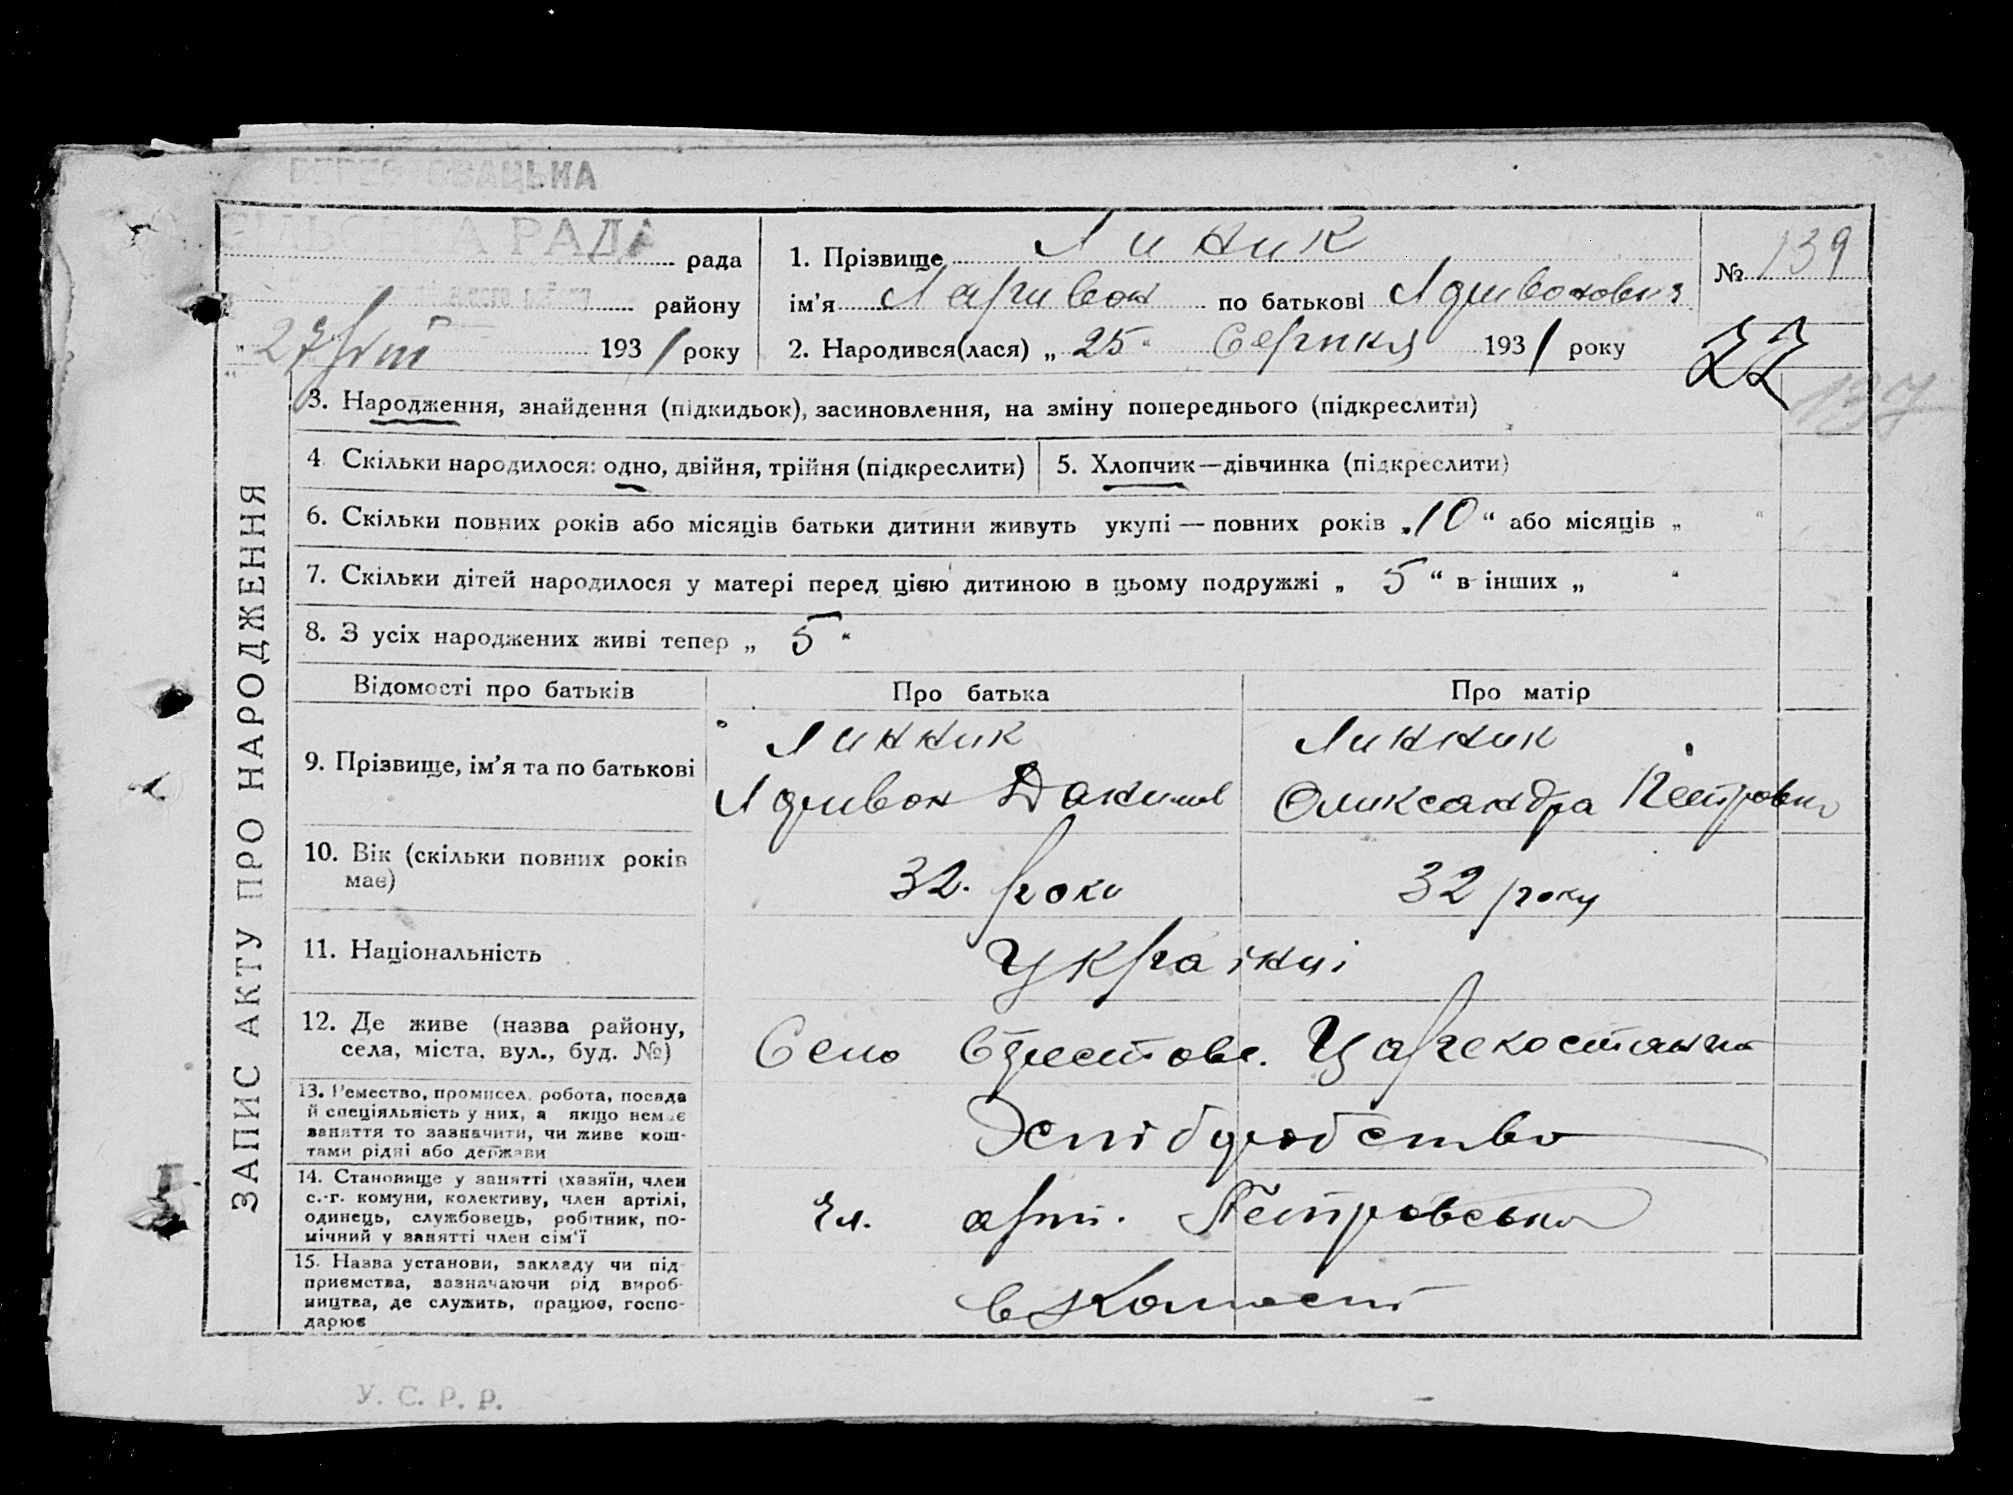 БЕРЕСТОВАЦЬКА
СІЛЬСЬКА РАДА
рада
району
„27 VIII 1931 року
1. Прізвище Линик
ім'я Ларивон по батькові
№ 139
2. Народився(лася) „ 25 " Серпня 1931 року
22
137
ЗАПИС АКТУ ПРО НАРОДЖЕННЯ
3. Народження, знайдення (підкидьок), засиновлення, на зміну попереднього (підкреслити)
4. Скільки народилося: одно, двійня, трійня (підкреслити)
5. Хлопчик—дівчинка (підкреслити)
6. Скільки повних років або місяців батьки дитини живуть укупі — повних років „10" або місяців „ "
7. Скільки дітей народилося у матері перед цією дитиною в цьому подружжі „ 5 " в інших „ "
8. З усіх народжених живі тепер „ 5 "
Відомості про батьків
Про батька
Про матір
9. Прізвище, ім'я та по батькові
Линник
Линник
Олександра Петровна
10. Вік (скільки повних років має)
32 роки
32 року
11. Національність
Українці
12. Де живе (назва району, села, міста, вул., буд. №)
Село Царекостянти
13. Ремество, промисел, робота, посада
й спеціяльність у них, а якщо немає
заняття то зазначити, чи живе кош-
тами рідні або держави
14. Становище у занятті (хазяїн, член
с.-г. комуни, колективу, член артілі,
одинець, службовець, робітник, по-
мічний у занятті член сім'ї
Чл. арт. Петровська
15. Назва установи, закладу чи під-
приємства, зазначаючи рід вироб-
ництва, де служить, працює, госпо-
дарює
У. С. Р. Р.